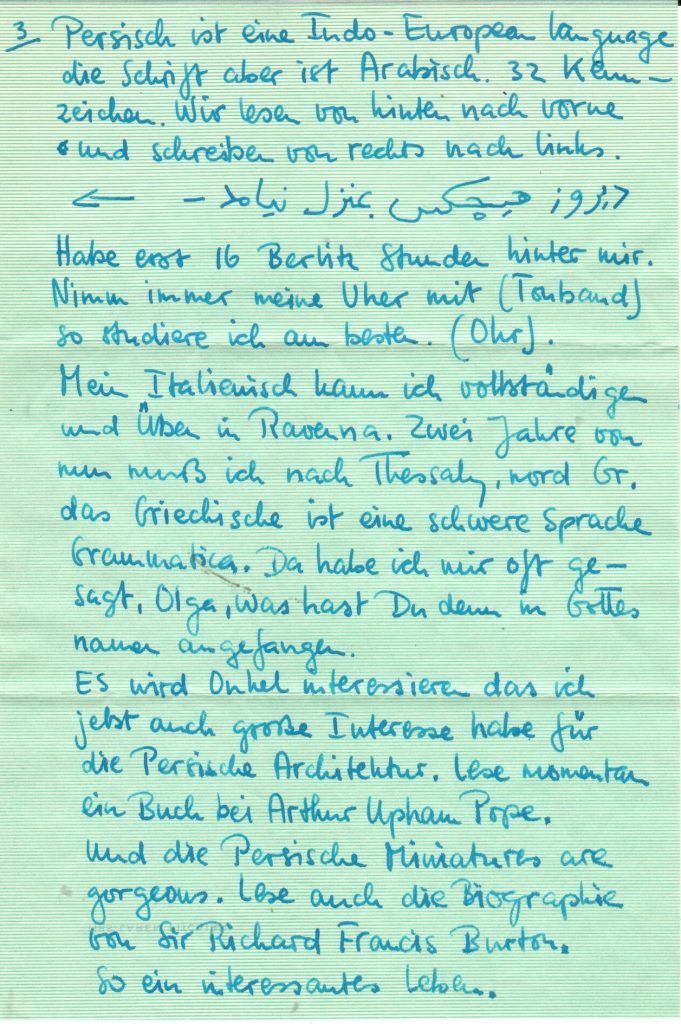 3 Persisch ist eine Indo-European language
die Schrift aber ist Arabisch. 32 Kenn-
zeichen. Wir lesen von hinten nach vorne
und schreiben von rechts nach links.
دیروز هیچکس بمنزل نیامد - ←
Habe erst 16 Berlitz Stunden hinter mir.
Nimm immer meine Uher mit (Tonband)
so studiere ich am besten. (Ohr).
Mein Italienisch kann ich vollständigen
und Üben in Ravenna. Zwei Jahre von
nun muß ich nach Thessaly, nord Gr.
das Griechische ist eine schwere Sprache
Grammatica. Da habe ich mir oft ge-
sagt, Olga, was hast Du denn in Gottes
namen angefangen.
ES wird Onkel interessieren das ich
jetzt auch große Interesse habe für
die Persische Architektur. Lese momentan
ein Buch bei Arthur Upham Pope.
Und die Persische Miniatures are
gorgeous. Lese auch die Biographie
von Sir Richard Francis Burton.
So ein interessantes Leben.